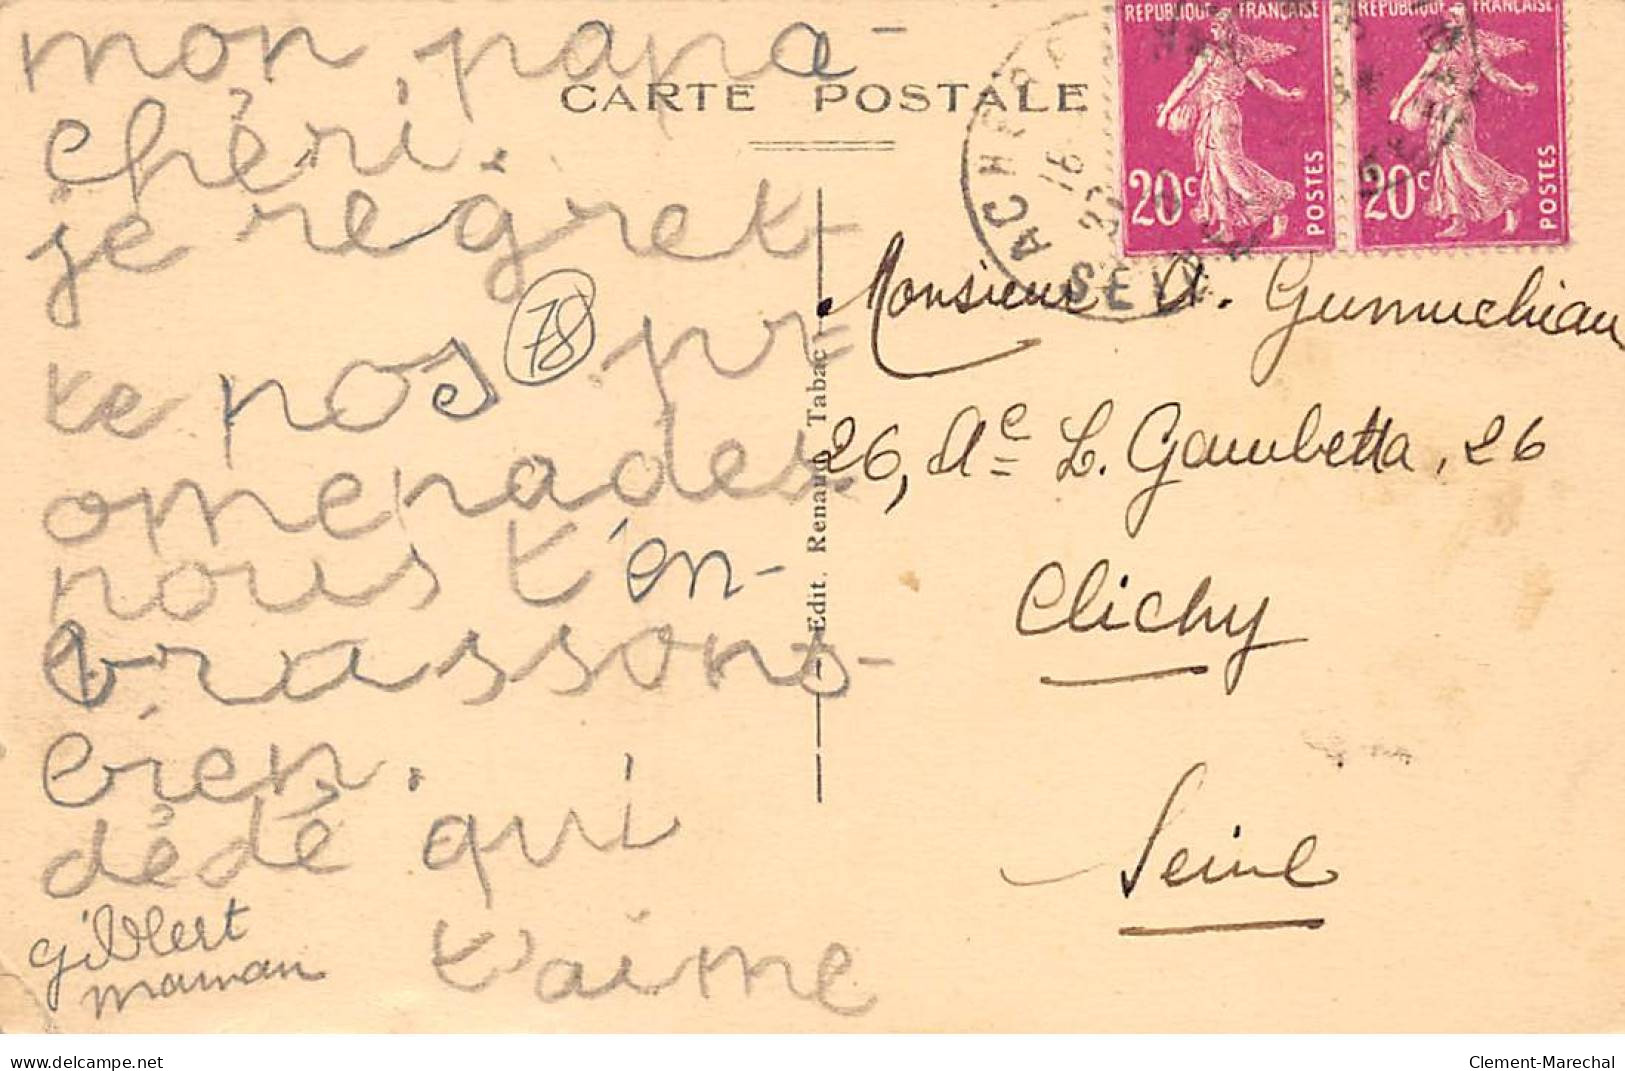 mon papa-
chéri.
je regret-
te nos pr=
omenades.
nous t'en-
brassons-
bien.
dédé qui
t'aime
gilbert
maman
78
CARTE POSTALE
Edit. Renaud Tabac
REPUBLIQUE FRANÇAISE
20c
POSTES
REPUBLIQUE FRANÇAISE
20c
POSTES
ACHERES
SEINE
Monsieur A. Gumuchian
26, Ae L. Gambetta, 26
Clichy
Seine
www.delcampe.net
Clement-Marechal